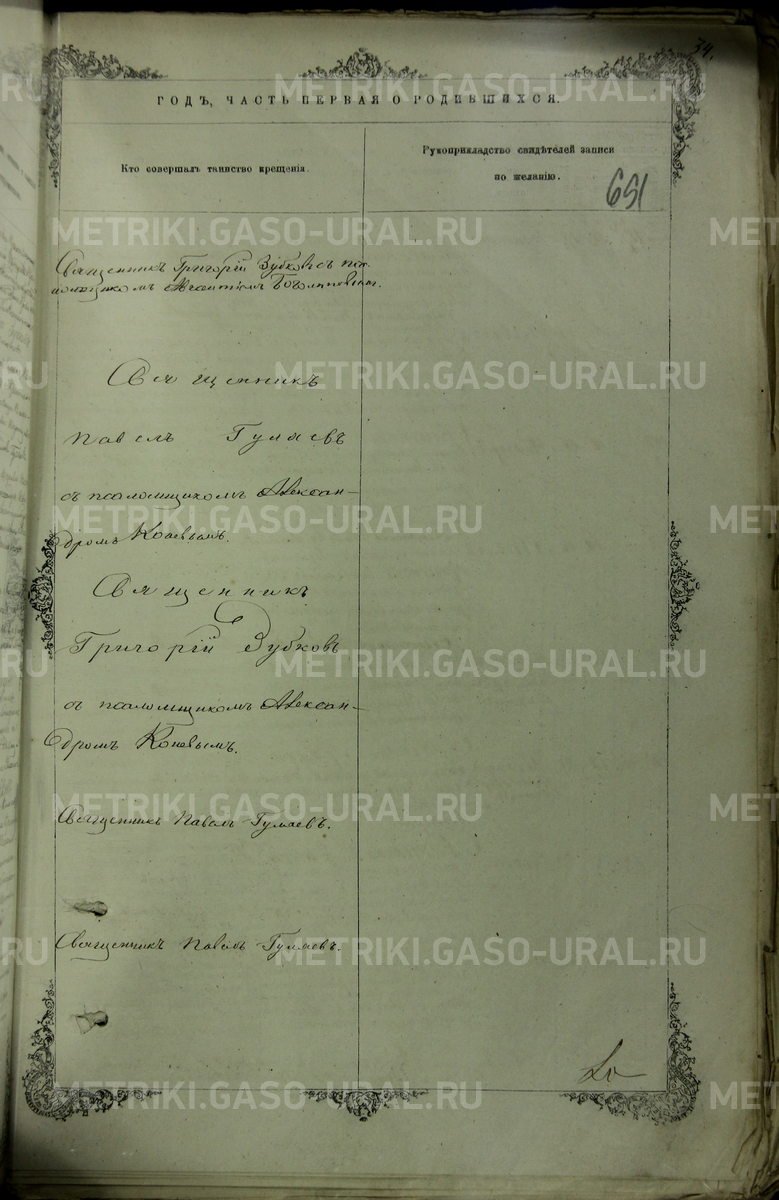 34.
ГОДЪ, ЧАСТЬ ПЕРВАЯ О РОДИВШИХСЯ.
Кто совершалъ таинство крещенія.
Рукоприкладство свидѣтелей записи
по желанію.
691
Священникъ Григорій Зубковъ съ пса-
ломщикомъ
Священникъ
Павелъ Гуляевъ
съ псаломщикомъ Алексан-
дромъ Коневымъ.
Священникъ
Григорій Зубковъ
съ псаломщикомъ Алексан-
дромъ Коневымъ.
Священникъ Павелъ Гуляевъ.
Священникъ Павелъ Гуляевъ.
METRIKI.GASO-URAL.RU